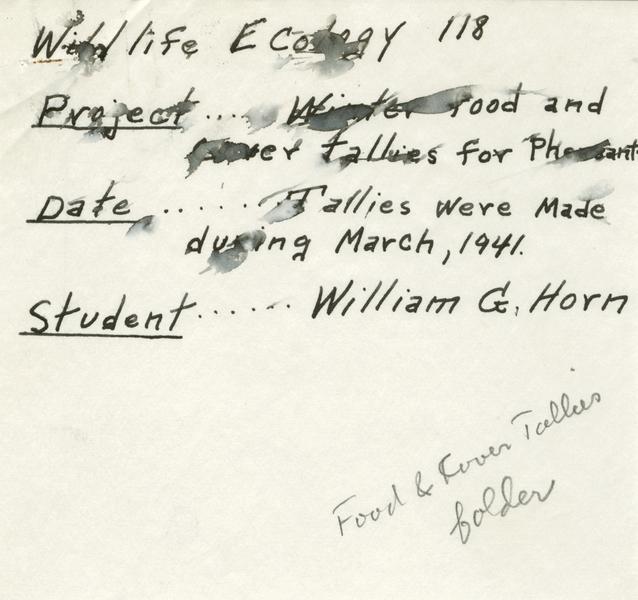 Wildlife Ecology 118
Project .... Winter food and
cover tallies for Pheasants
Date ...... Tallies were Made
during March, 1941.
Student ...... William G. Horn
Food & Kover Tallies
folder